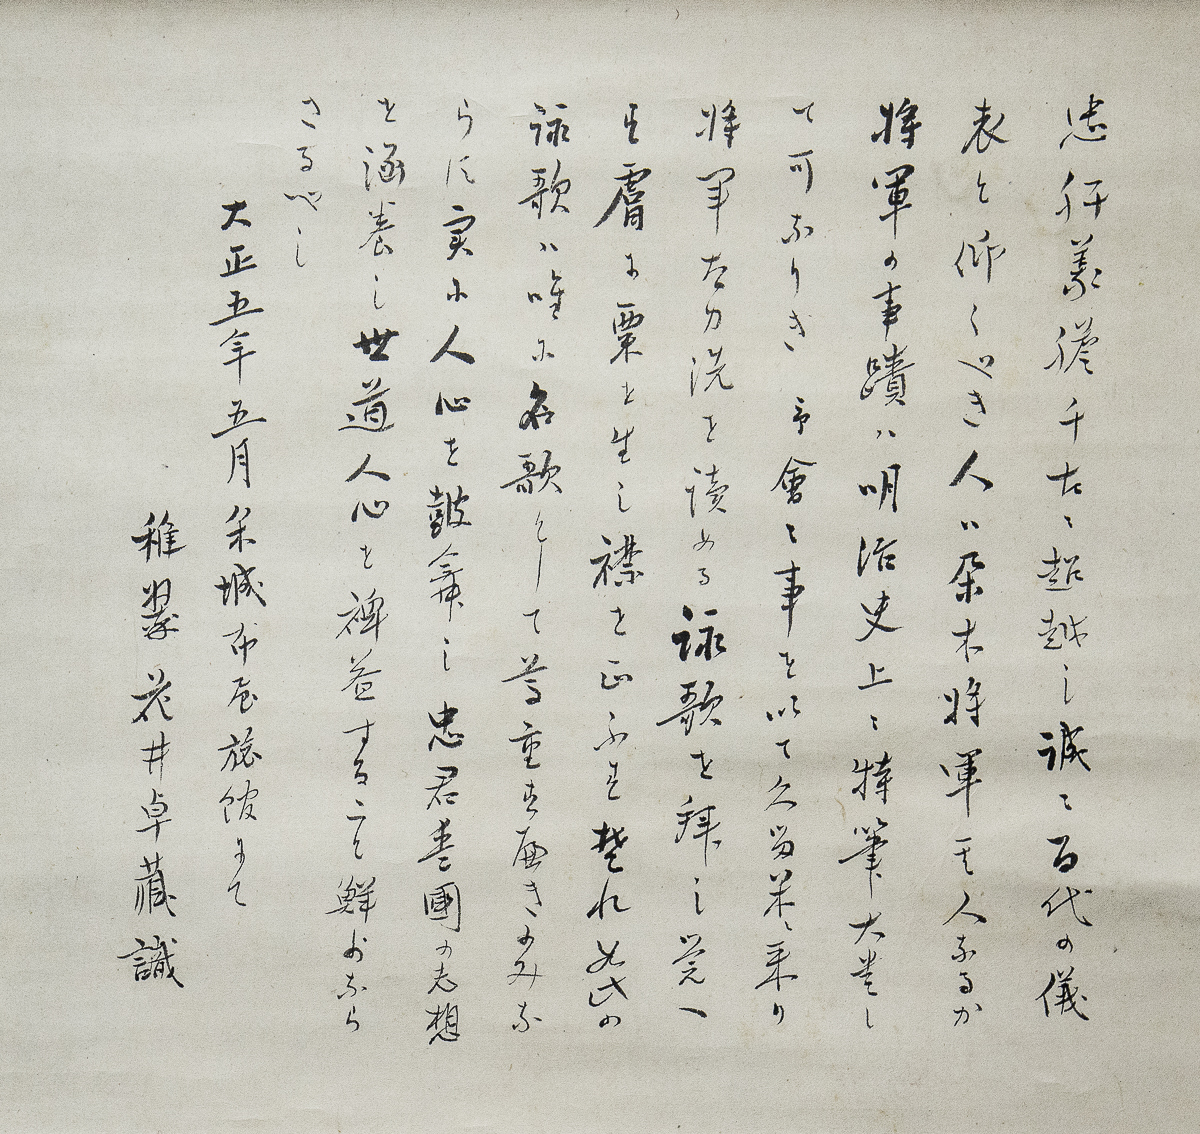 忠肝義膽千古ニ超越し誠ニ百代の儀
表と仰くへき人ハ乃木将軍其人なるか
将軍の事蹟ハ明治史上ニ特筆大書し
て可なりき予會ニ事を以て久留米ニ来り
将軍太刀洗を讀める詠歌を拝し覚へ
す膚に粟を生し襟を正ふせ里夫れ如此の
詠歌ハ唯に名歌として尊重す廍きのみな
らす実に人心を皷舞し忠君愛國の志想
を涵養し世道人心を裨益すること鮮少なら
さるへし
大正五年五月 城布屋旅館にて
稚翠花井卓蔵識